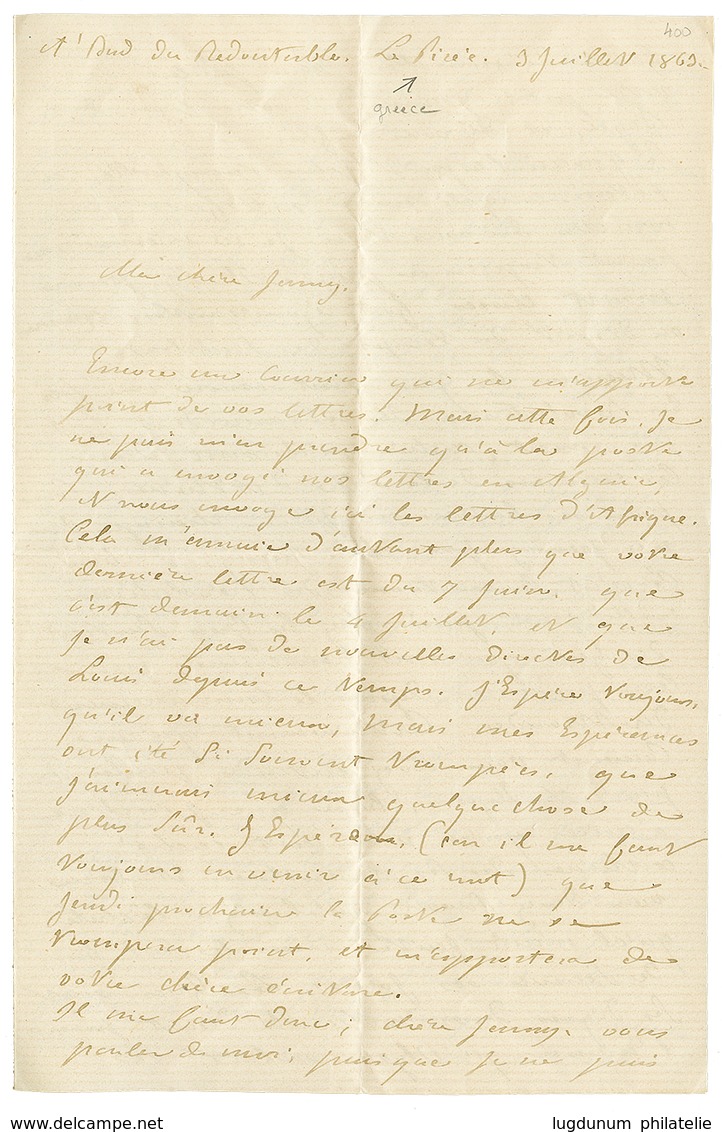 400
A' Bord du Redoutable. Le Pirée. 3 Juillet 1863.
greece
Ma chère Jenny.
Encore un Courrier qui ne m'apporte
point de vos lettres. Mais cette fois, je
ne puis m'en prendre qu'à la poste
qui a envoyé nos lettres en Algérie,
et nous envoye ici les lettres d'Afrique.
Cela m'ennuie d'autant plus que votre
dernière lettre est du 7 Juin. que
c'est demain le 4 Juillet, et que
je n'ai pas de nouvelles directes de
Louis depuis ce temps. J'Espère toujours,
qu'il va mieux, mais mes Espérances
ont été si souvent trompées, que
j'aimerais mieux quelque chose de
plus sûr. J'Espère, (car il me faut
toujours en venir à ce mot) que
Jeudi prochain la Poste ne se
trompera point, et m'apportera de
votre chère écriture.
Il me faut donc, chère Jenny, vous
parler de moi, puisque je ne puis
www.delcampe.net
lugdunum philatelie